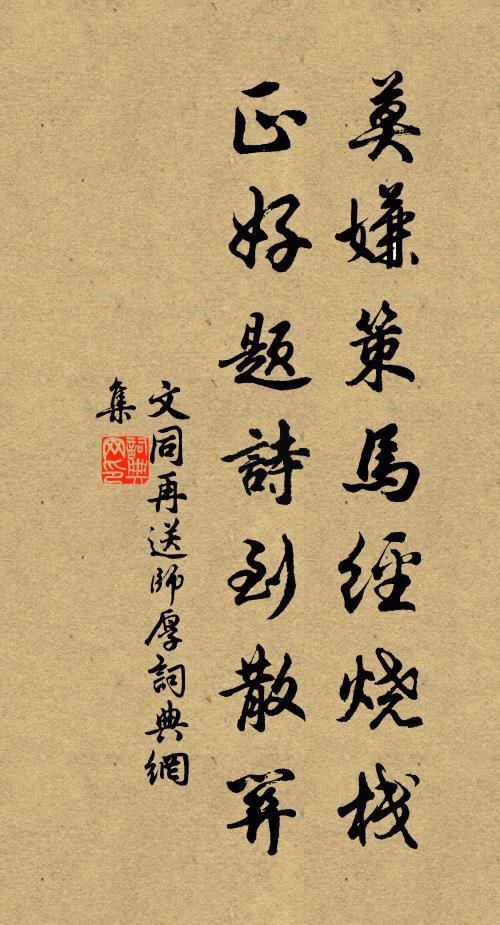 莫嫌策馬經燒栈
正好題詩到散關
文同再送師厚詞典網
集
詞典网印